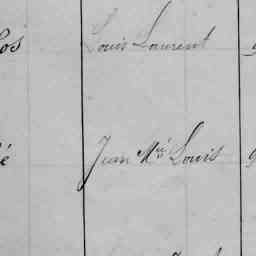 Louis Laurent
Jean Mie Louis